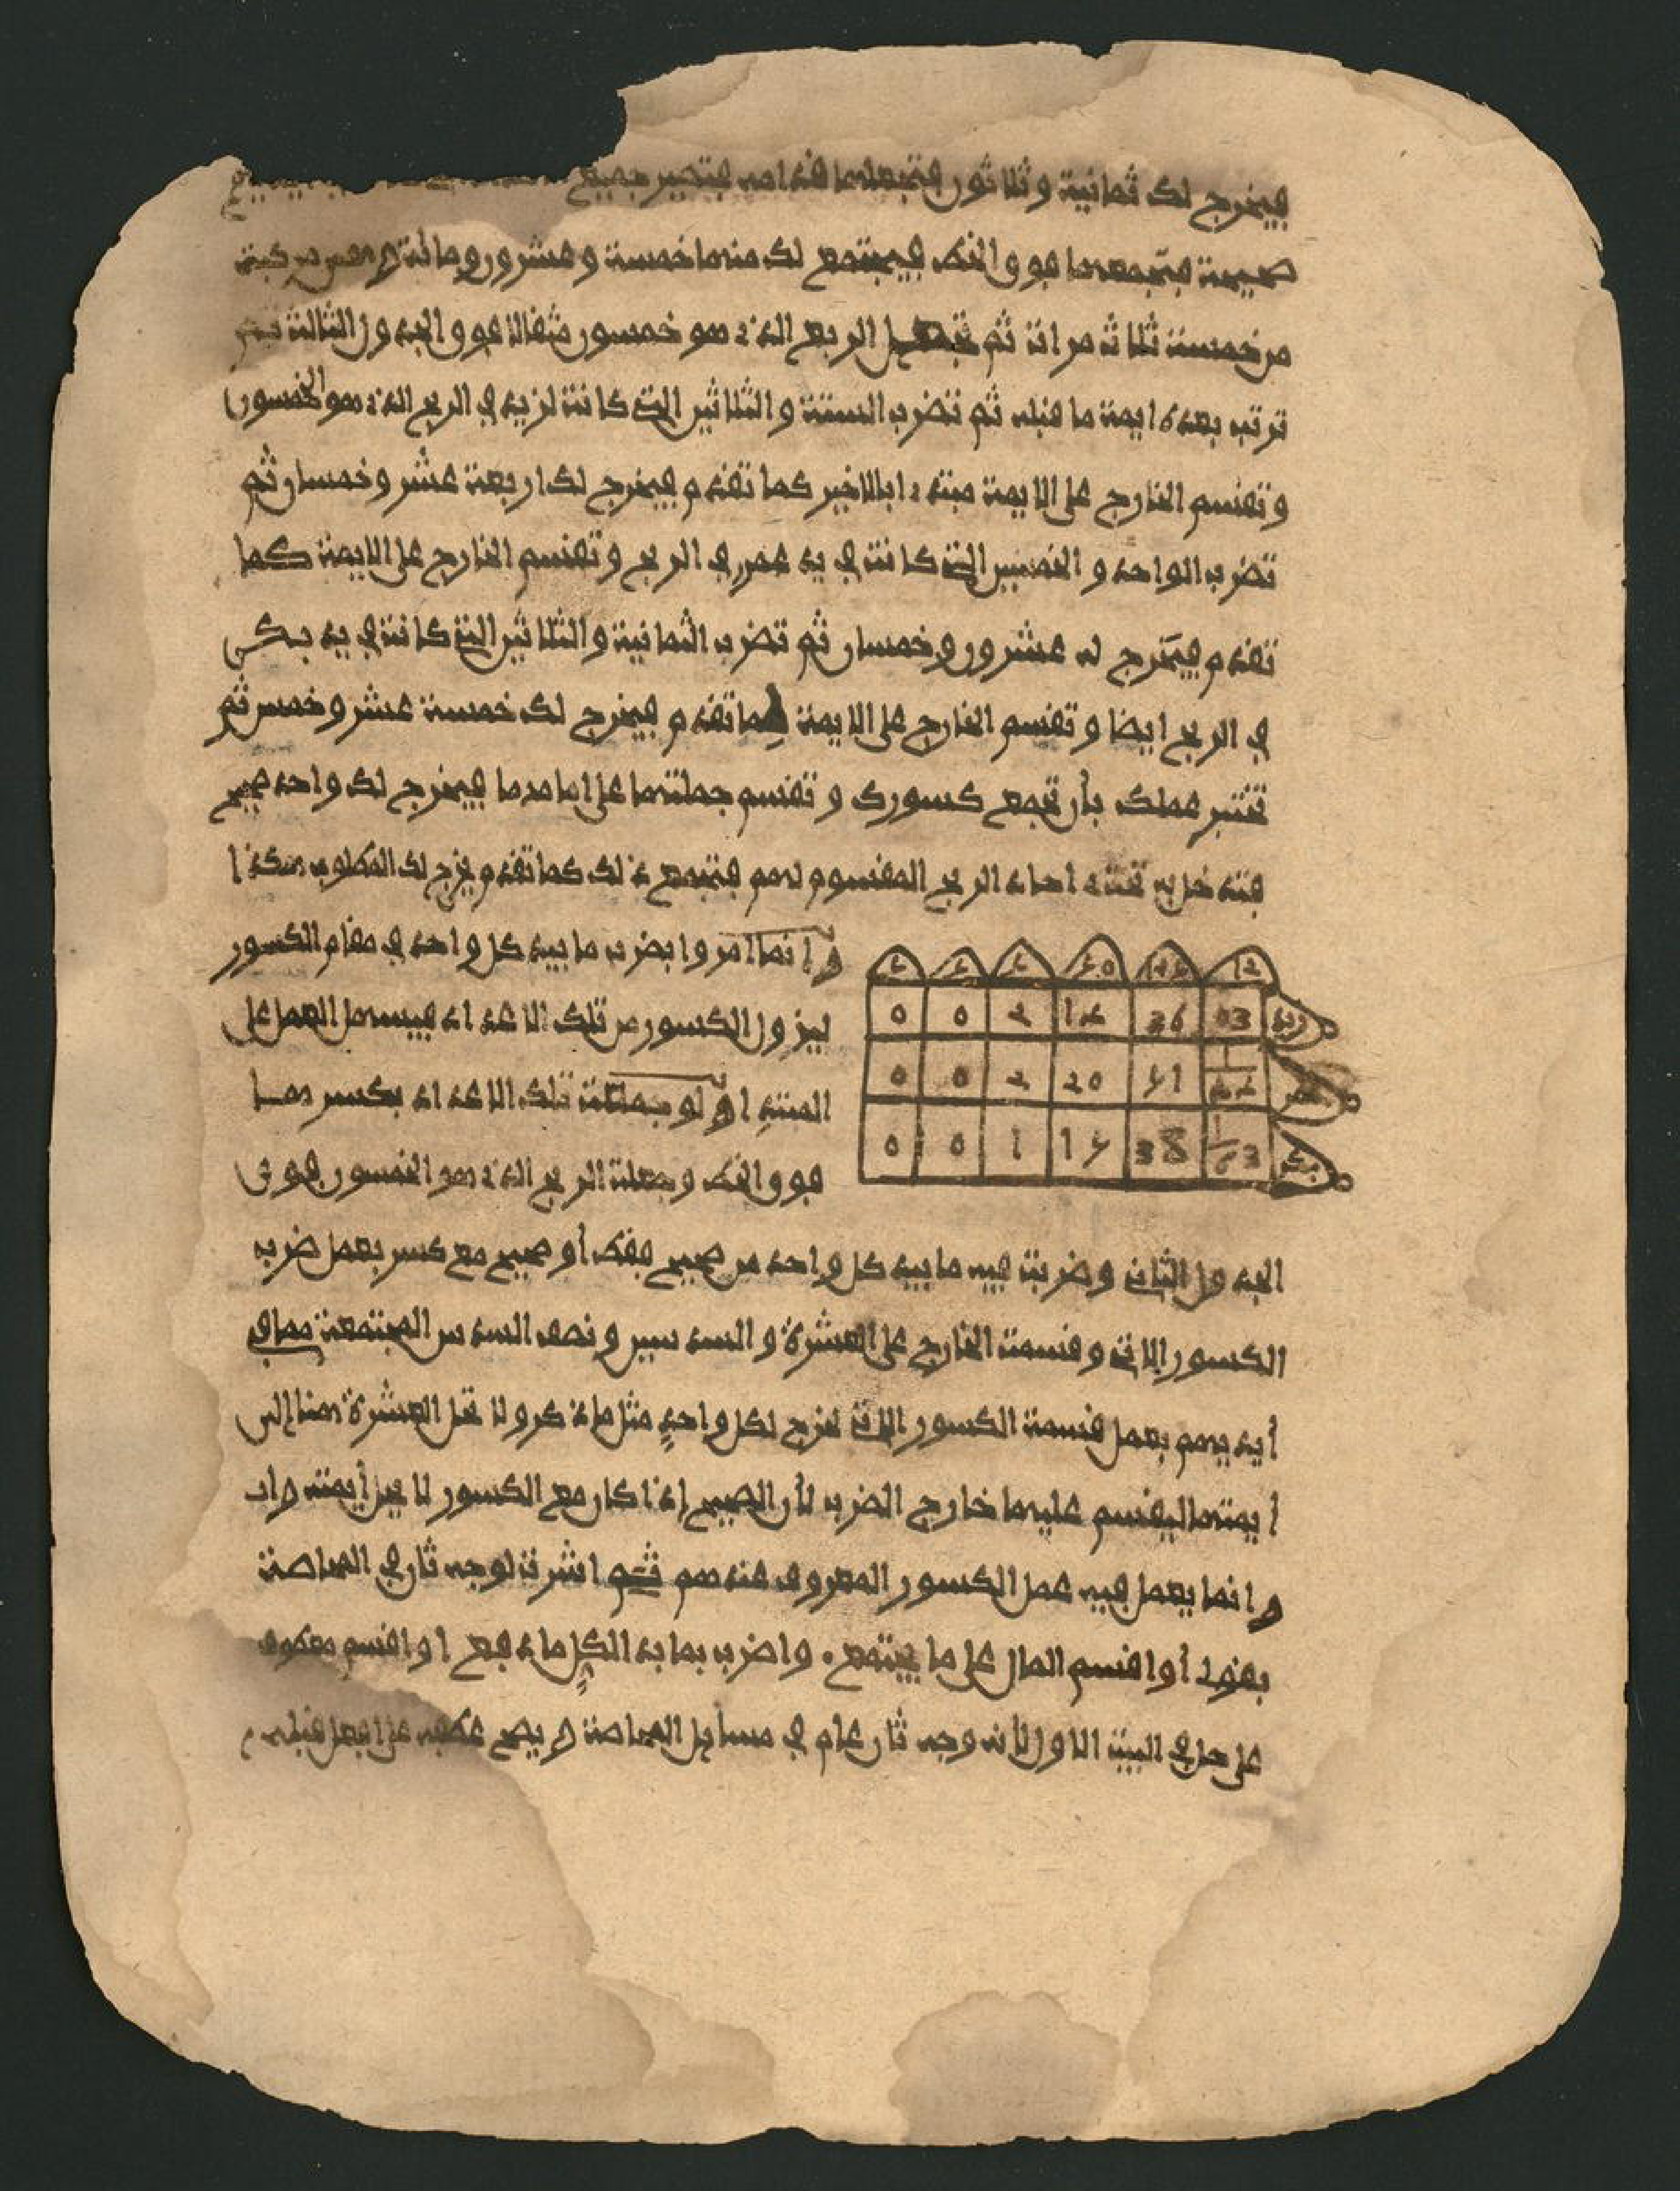 فيخرج لك ثمانية وثلاثون فتجعلها قدامه فتصير جميع
صحيحة فتجمعها فوق الخط فيجتمع لك منها خمسة وعشرون ومائة وهي مركبة
من خمسة ثلاث مرات ثم تجعل الربح الذي هو خمسون مثقالا فوق الجدول الثالث ثم
ترتب بعده ايمة ما قبله ثم تضرب الستة والثلاثين التي كانت لزيد في الربح الذي هو الخمسون
وتقسم الخارج على الايمة مبتديا بالاخير كما تقدم فيخرج لك اربعة عشر وخمسان ثم
تضرب الواحد و الخمسين التي كانت في يد عمر في الربح وتقسم الخارج على الايمة كما
تقدم فيخرج له عشرون وخمسان ثم تضرب الثمانية والثلاثين التي كانت في يد بكر
في الربح ايضا وتقسم الخارج على الايمة كما تقدم فيخرج لك خمسة عشر وخمس ثم
تختبر عملك بأن تجمع كسورك وتقسم جملتها على امامها فيخرج لك واحد صحيح
فتدخل به تحت احاد الربح المقسوم لهم فتجمع ذلك كما تقدم يخرج لك المطلوب هكذا
وانما امروا بضرب ما بيد كل واحد في مقام الكسور
ليزول الكسور من تلك الاعداد فيسهل العمل على
المبتدي اذ لو جمعت تلك الاعداد بكسرها
فوق الخط وجعلت الربح الذي هو الخمسون فوق
الجدول الثاني وضربت فيه ما بيد كل واحد من صحيح فقط أو صحيح مع كسر بعمل ضرب
الكسور الاتي وقسمت الخارج على العشرة والسدسين ونصف السدس المجتمعة مما في
أيديهم بعمل قسمة الكسور الاتي لخرج لكل واحد مثل ما ذكر ولا تحل العشرة هنا إلى
أيمتها ليقسم عليها خارج الضرب لأن الصحيح إذا كان مع الكسور لا يحل أيمته
وانما يعمل فيه عمل الكسور المعروف عندهم ثم اشرت لوجه ثان في المحاصة
بقولي أو اقسم المال على ما يجتمع. واضرب بما بدا لكل ما دفع او اقسم معطوف
على حل في البيت الاول لأنه وجه ثان عام في مسايل المحاصة ويصح عطفه على افعل قبله
0 0 2 14 36 03 زيد
0 0 2 20 51 عمر
0 0 1 15 38 بكر